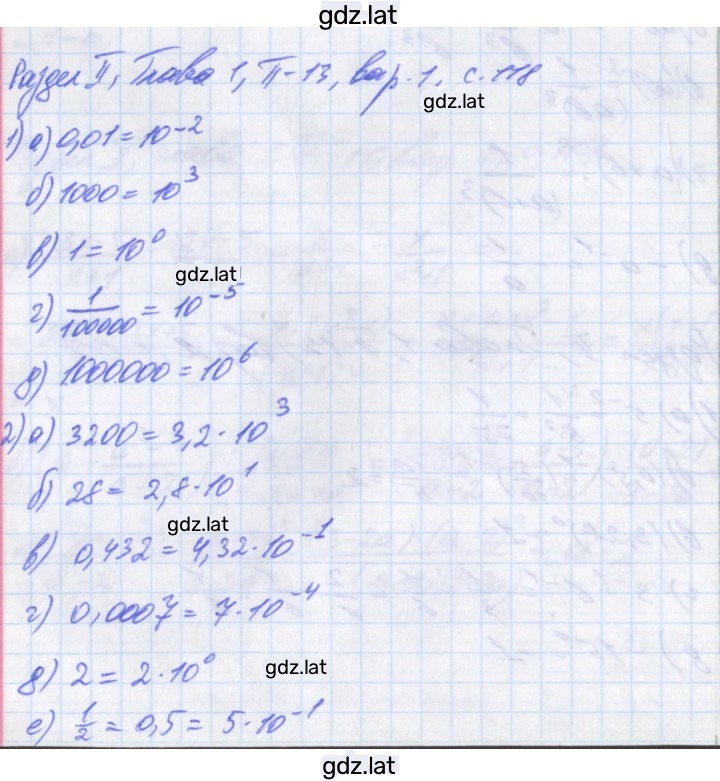 gdz.lat
Раздел II, Глава 1, П-13, вар. 1. с. 118
gdz.lat
1) а) 0,01 = 10⁻²
б) 1000 = 10³
в) 1 = 10⁰
gdz.lat
г) 1/100000 = 10⁻⁵
д) 1000000 = 10⁶
2) а) 3200 = 3,2 · 10³
б) 28 = 2,8 · 10¹
gdz.lat
в) 0,432 = 4,32 · 10⁻¹
г) 0,0007 = 7 · 10⁻⁴
д) 2 = 2 · 10⁰
gdz.lat
е) 1/2 = 0,5 = 5 · 10⁻¹
gdz.lat